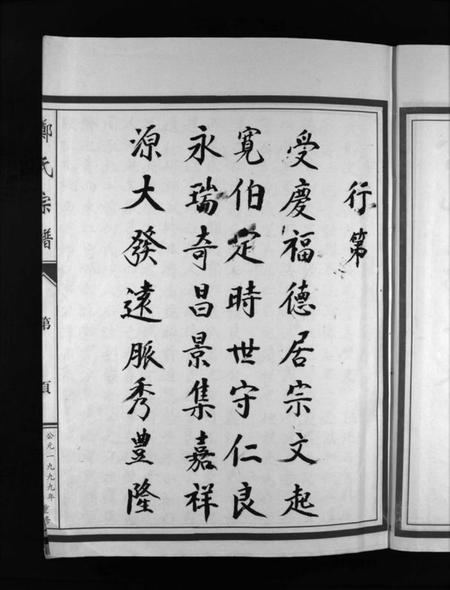 行第
受慶福德居宗文起
寬伯定時世守仁良
永瑞奇昌景集嘉祥
源大發遠脈秀豊隆
鄭氏宗譜
第
頁
公元一九九九年重修